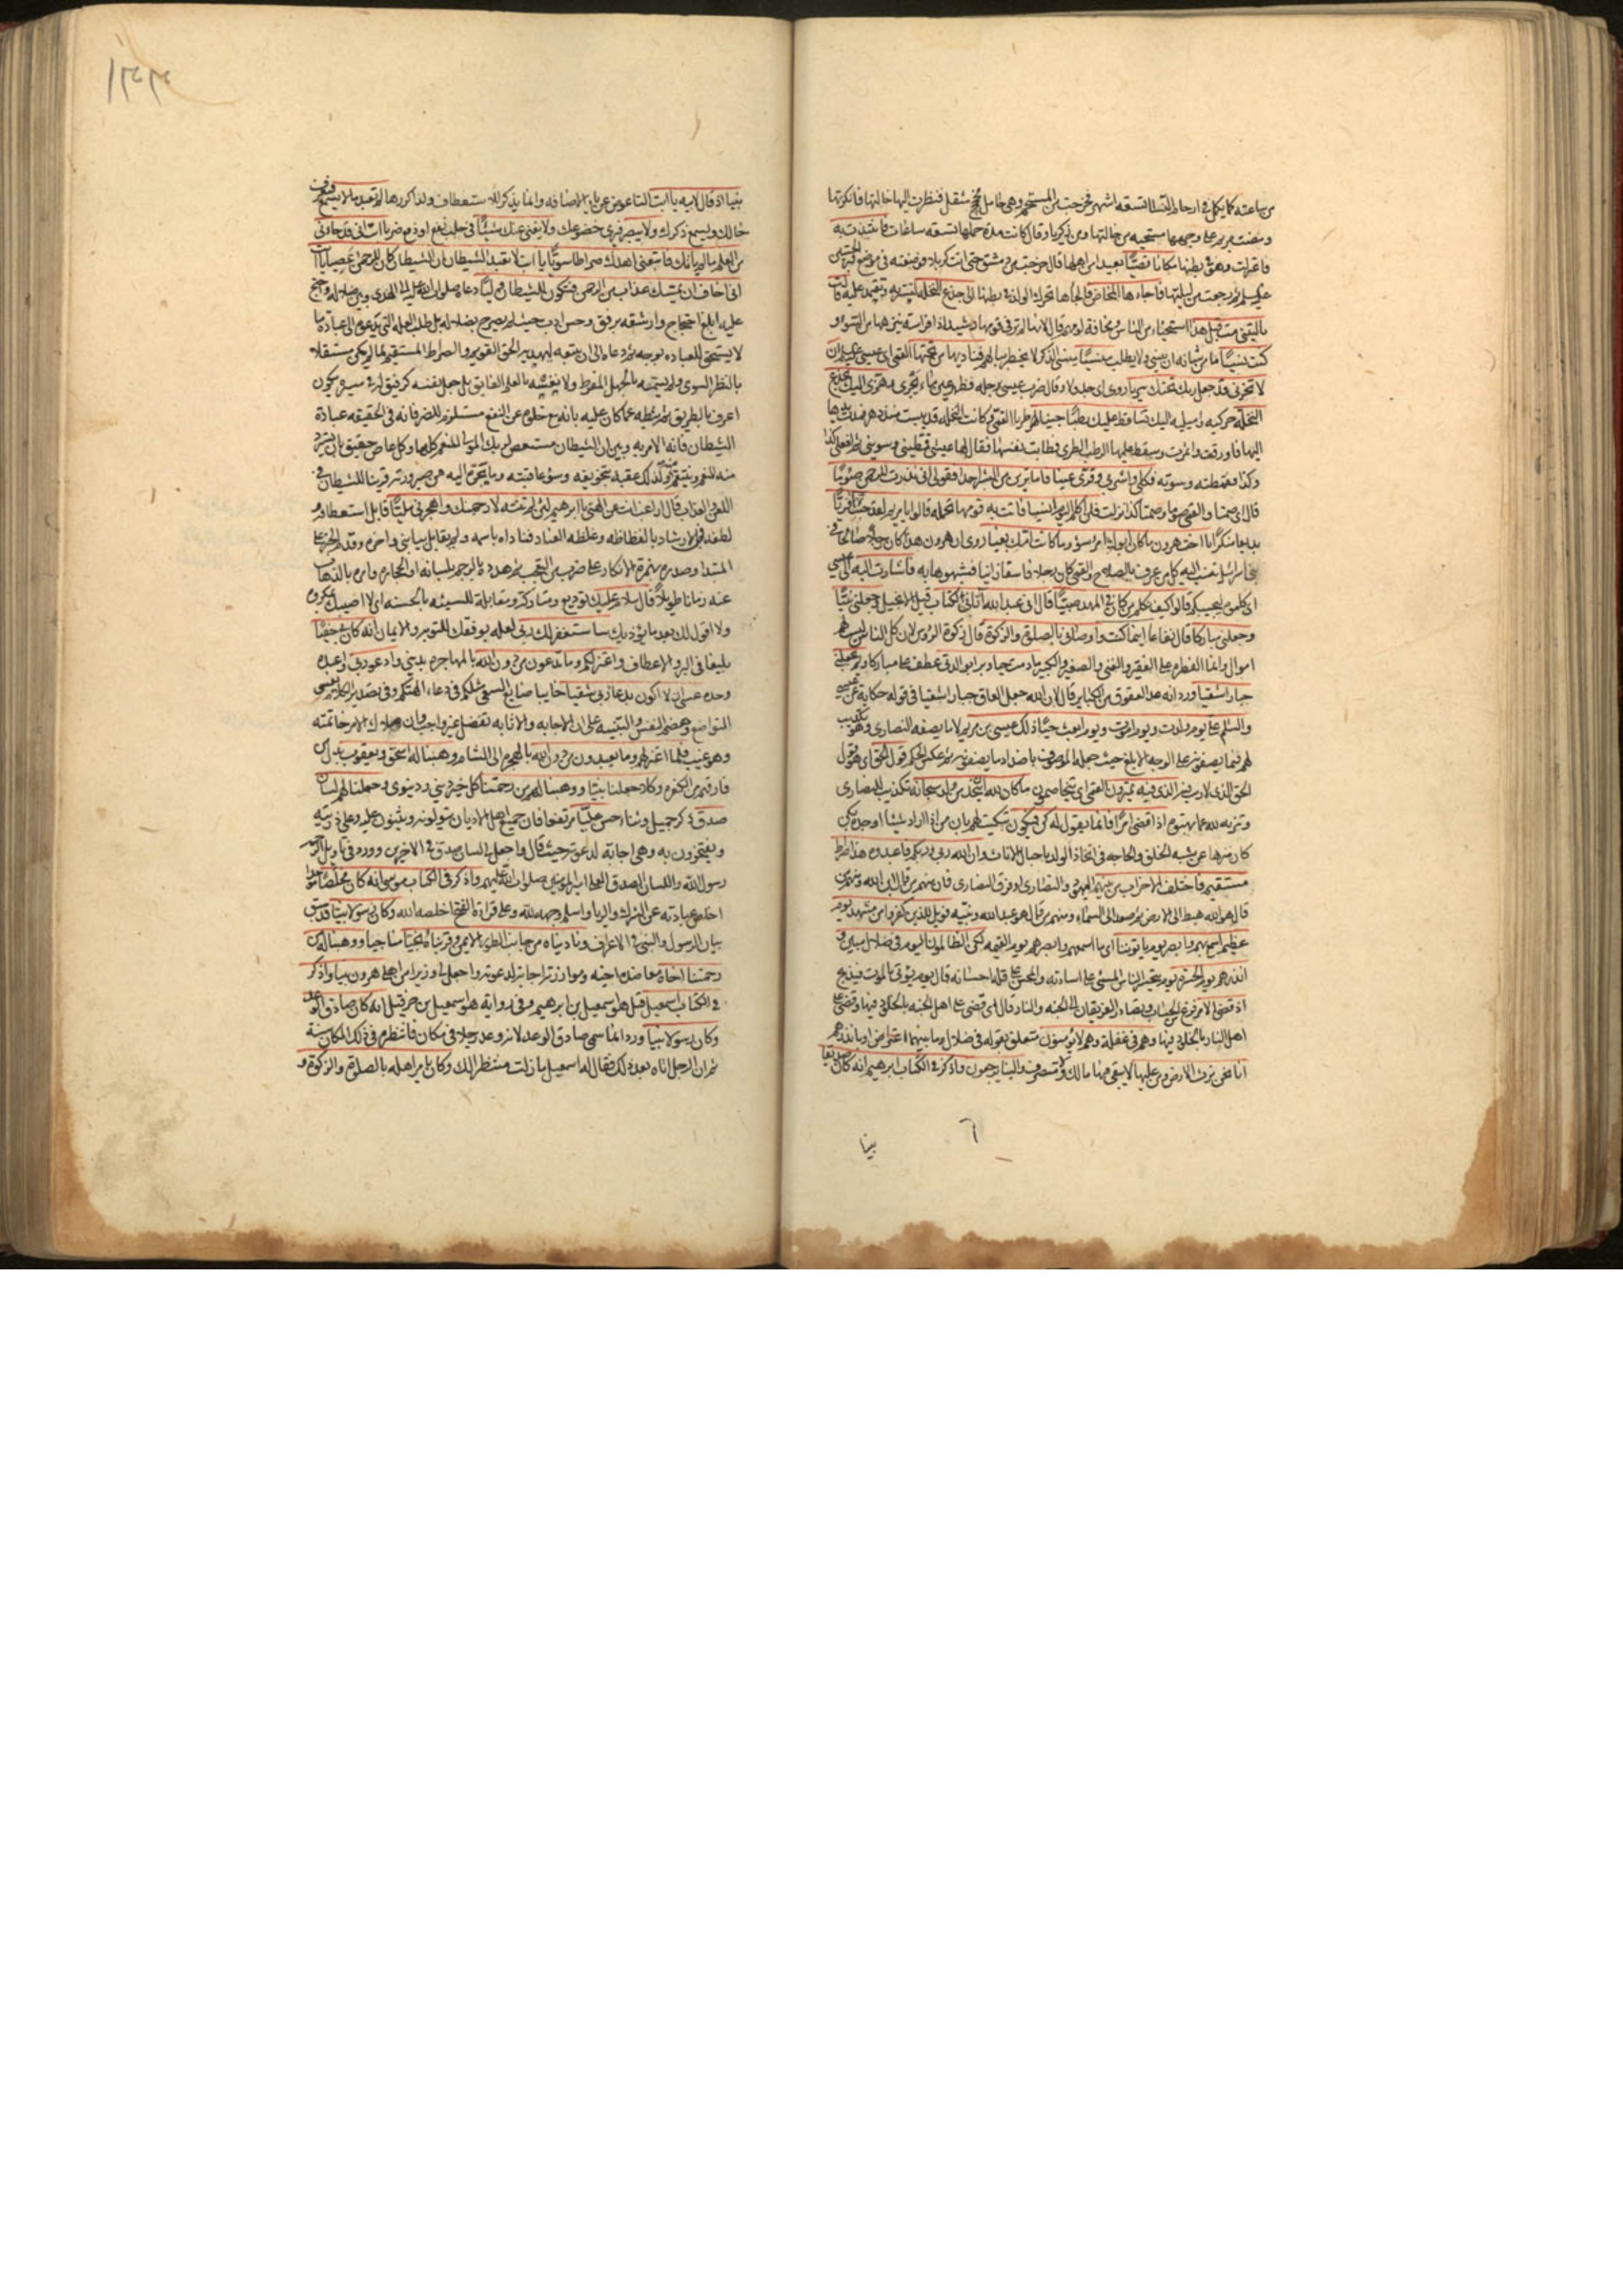 من ساعته كما يكمل في ارحام النساء تسعة اشهر فخرجت من المستحم وهي حامل مثقل فنظرت اليها خالتها فانكرتها
ومضت مريم على وجهها مستحيه من خالتها ومن زكريا وقال كانت مدة حملها تسعه ساعات فانتبذت به
فاعتزلت وهو في بطنها مكانا قصيا بعيدا من اهلها قال خرجت من دمشق حتى اتت كربلا فوضعته في موضع قبر الحسين
عليه ثم رجعت من ليلتها فاجاءها المخاض فالجأها تحرك الولد في بطنها الى جذع النخله لتستتر به وتعتمد عليه قالت
يا ليتني مت قبل هذا استحياء من الناس ومخافة لومهم قال لانها لم تر في قومها رشيدا ذا فراسة ينزهها من السوء و
كنت نسيا ما من شانه ان ينسى ولا يطلب منسيا منسى الذكر لا يخطر ببالهم فناديها من تحتها القمي اي عيسى ان
لا تحزني قد جعل ربك تحتك سريا روي اي جدولا وقال ضرب عيسى برجله فظهر عين ماء يجري وهزي اليك بجذع
النخلة حركيه واميليه اليك تساقط عليك رطبا جنيا طريا القمي وكانت النخله قد يبست منذ دهر فمدت يدها
اليها فاورقت واثمرت وسقط عليها الرطب الطري فطابت نفسها فقال لها عيسى قمطيني وسويني ثم افعلي كذا
وكذا فقمطته وسوته فكلي واشربي وقري عينا فاما ترين من البشر احدا فقولي اني نذرت للرحمن صوما
قال اي صمتا والقمي صوما وصمتا كذا نزلت فلن اكلم اليوم انسيا فاتت به قومها تحمله قالوا يا مريم لقد جئت شيئا فريا
بديعا منكرا يا اخت هرون ما كان ابوك امرء سوء وما كانت امك بغيا روي ان هرون هذا كان رجلا صالحا في
بني اسرائيل ينسب اليه كل من عرف بالصلاح والقمي كان رجلا فاسقا زانيا فشبهوها به فاشارت اليه الى عيسى
اي كلموه ليجيبكم قالوا كيف نكلم من كان في المهد صبيا قال اني عبد الله آتاني الكتاب قيل الانجيل وجعلني نبيا
وجعلني مباركا قال نفاعا اينما كنت واوصاني بالصلوة والزكوة قال زكوة الرؤس لان كل الناس ليس لهم
اموال وانما الفطرة على الفقير والغني والصغير والكبير ما دمت حيا وبرا بوالدتي عطف على مباركا ولم يجعلني
جبارا شقيا ورد انه عد العقوق من الكبائر قال لان الله جعل العاق جبارا شقيا في قوله حكاية عن عيسى
والسلم علي يوم ولدت ويوم اموت ويوم ابعث حيا ذلك عيسى بن مريم لا ما يصفه النصارى وهو تكذيب
لهم فيما يصفونه على الوجه الابلغ حيث جعله الموصوف باضداد ما يصفونه ثم عكس الحكم قول الحق اي هو قول
الحق الذي لا ريب فيه الذي فيه يمترون القمي اي يتخاصمون ما كان لله ان يتخذ من ولد سبحانه تكذيب للنصارى
وتنزيه لله عما بهتوه اذا قضى امرا فانما يقول له كن فيكون تبكيت لهم بان من اذا اراد شيئا اوجده بكن
كان منزها عن شبه الخلق والحاجه في اتخاذ الولد باحبال الاناث وان الله ربي وربكم فاعبدوه هذا صراط
مستقيم فاختلف الاحزاب من بينهم اليهود والنصارى او فرق النصارى فان منهم من قال ابن الله ومنهم من
قال هو الله هبط الى الارض ثم صعد الى السماء ومنهم من قال هو عبد الله ونبيه فويل للذين كفروا من مشهد يوم
عظيم اسمع بهم وابصر يوم ياتوننا اي ما اسمعهم وابصرهم يوم القيمه لكن الظالمون اليوم في ضلال مبين و
انذرهم يوم الحسرة يوم يتحسر الناس المسئ على اساءته والمحسن على قلة احسانه قال يوم يؤتى بالموت فيذبح
اذ قضي الامر فرغ من الحساب وتصادر الفريقان الى الجنه والنار قال اي قضي على اهل الجنه بالخلود فيها وقضي على
اهل النار بالخلود فيها وهم في غفلة وهم لا يؤمنون متعلق بقوله في ضلال وما بينهما اعتراض او بانذرهم
انا نحن نرث الارض ومن عليها لا يبقى فيها مالك ولا متصرف والينا يرجعون واذكر في الكتاب ابرهيم انه كان صديقا
نبيا
نبيا اذ قال لابيه يا ابت التا عوض عن ياء الاضافه وانما يذكر للاستعطاف ولذا كررها لم تعبد ما لا يسمع فيعرف
حالك ويسمع ذكرك ولا يبصر فيرى خضوعك ولا يغني عنك شيئا في جلب نفع او دفع ضر يا ابت اني قد جاءني
من العلم ما لم ياتك فاتبعني اهدك صراطا سويا يا ابت لا تعبد الشيطان ان الشيطان كان للرحمن عصيا يا ابت
اني اخاف ان يمسك عذاب من الرحمن فتكون للشيطان وليا دعاه صلوات الله عليه الى الهدى وبين ضلاله واحتج
عليه ابلغ احتجاج وارشقه برفق وحسن ادب حيث لم يصرح بضلاله بل طلب العله التي تدعوه الى عبادة ما
لا يستحق للعباده بوجه ثم دعاه الى ان يتبعه ليهديه الحق القويم والصراط المستقيم لما لم يكن مستقلا
بالنظر السوي ولم يسمه بالجهل المفرط ولا نفسه بالعلم الفايق بل جعل نفسه كرفيق له في مسير يكون
اعرف بالطريق ثم ثبطه عما كان عليه بانه مع خلوه عن النفع مستلزم للضر فانه في الحقيقه عبادة
الشيطان فانه الامر به وبين ان الشيطان مستعص لربك المولى للنعم كلها وكل عاص حقيق بان يسترد
منه النعم وينتقم منه ولذلك عقبه بتخويفه وسوء عاقبته وما يجره اليه من صيرورته قرينا للشيطان في
اللعن والعذاب قال اراغب انت عن الهتي يا ابرهيم لئن لم تنته لارجمنك واهجرني مليا قابل استعطافه و
لطفه في الارشاد بالفظاظه وغلظه العناد فناداه باسمه ولم يقابل بيا بني واخره وقدم الخبر على
المبتدا وصدره بهمزة الانكار على ضرب من التعجب ثم هدده بالرجم بلسانه او الحجارة وامره بالذهاب
عنه زمانا طويلا قال سلام عليك توديع ومتاركة ومقابلة للسيئه بالحسنه اي لا اصيبك بمكروه
ولا اقول لك بعد ما يؤذيك ساستغفر لك ربي لعله يوفقك للتوبه والايمان انه كان بي حفيا
بليغا في البر والاعطاف واعتزلكم وما تدعون من دون الله بالمهاجرة بديني وادعو ربي واعبده
وحده عسى ان لا اكون بدعاء ربي شقيا خايبا ضايع السعي مثلكم في دعاء الهتكم وفي تصدير الكلام بعسى
التواضع وهضم النفس والتنبيه على ان الاجابه والاثابه تفضل غير واجب وان ملاك الامر خاتمته
وهو غيب فلما اعتزلهم وما يعبدون من دون الله بالهجرة الى الشام وهبنا له اسحق ويعقوب بدل من
فارقهم من الكفرة وكلا جعلنا نبيا ووهبنا لهم من رحمتنا كل خير ديني ودنيوي وجعلنا لهم لسان
صدق ذكر جميل وثناء حسن عليا مرتفعا فان جميع اهل الاديان يتولونه ويثنون عليه وعلى ذريته
ويفتخرون به وهي اجابة لدعوته حيث قال واجعل لي لسان صدق في الاخرين وورد في تاويل الرحمه
رسول الله واللسان الصدق العلي امير المؤمنين صلوات الله عليهم واذكر في الكتاب موسى انه كان مخلصا موحدا
اخلص عبادته عن الشرك والريا واسلم وجهه لله وعلى قراءة الفتح اخلصه الله وكان رسولا نبيا قد سبق
بيان الرسول والنبي في الاعراف وناديناه من جانب الطور الايمن وقربناه نجيا مناجيا ووهبنا له من
رحمتنا اخاه معاضدة اخيه وموازرته اجابة لدعوته واجعل لي وزيرا من اهلي هرون نبيا واذكر
في الكتاب اسمعيل قيل هو اسمعيل بن ابرهيم وفي رواية هو اسمعيل بن حزقيل انه كان صادق الوعد
وكان رسولا نبيا ورد انما سمي صادق الوعد لانه وعد رجلا في مكان فانتظره في ذلك المكان سنة
ثم ان الرجل اتاه بعد ذلك فقال له اسمعيل ما زلت منتظرا لك وكان يامر اهله بالصلوة والزكوة و